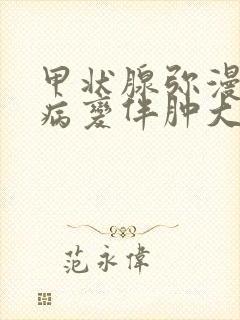 甲状腺弥漫
病變伴肿大
范永偉